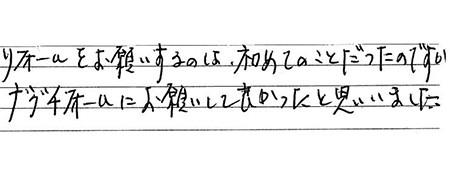 リフォームをお願いするのは、初めてのことだったのですが
ナヅキホームにお願いして良かったと思いいました